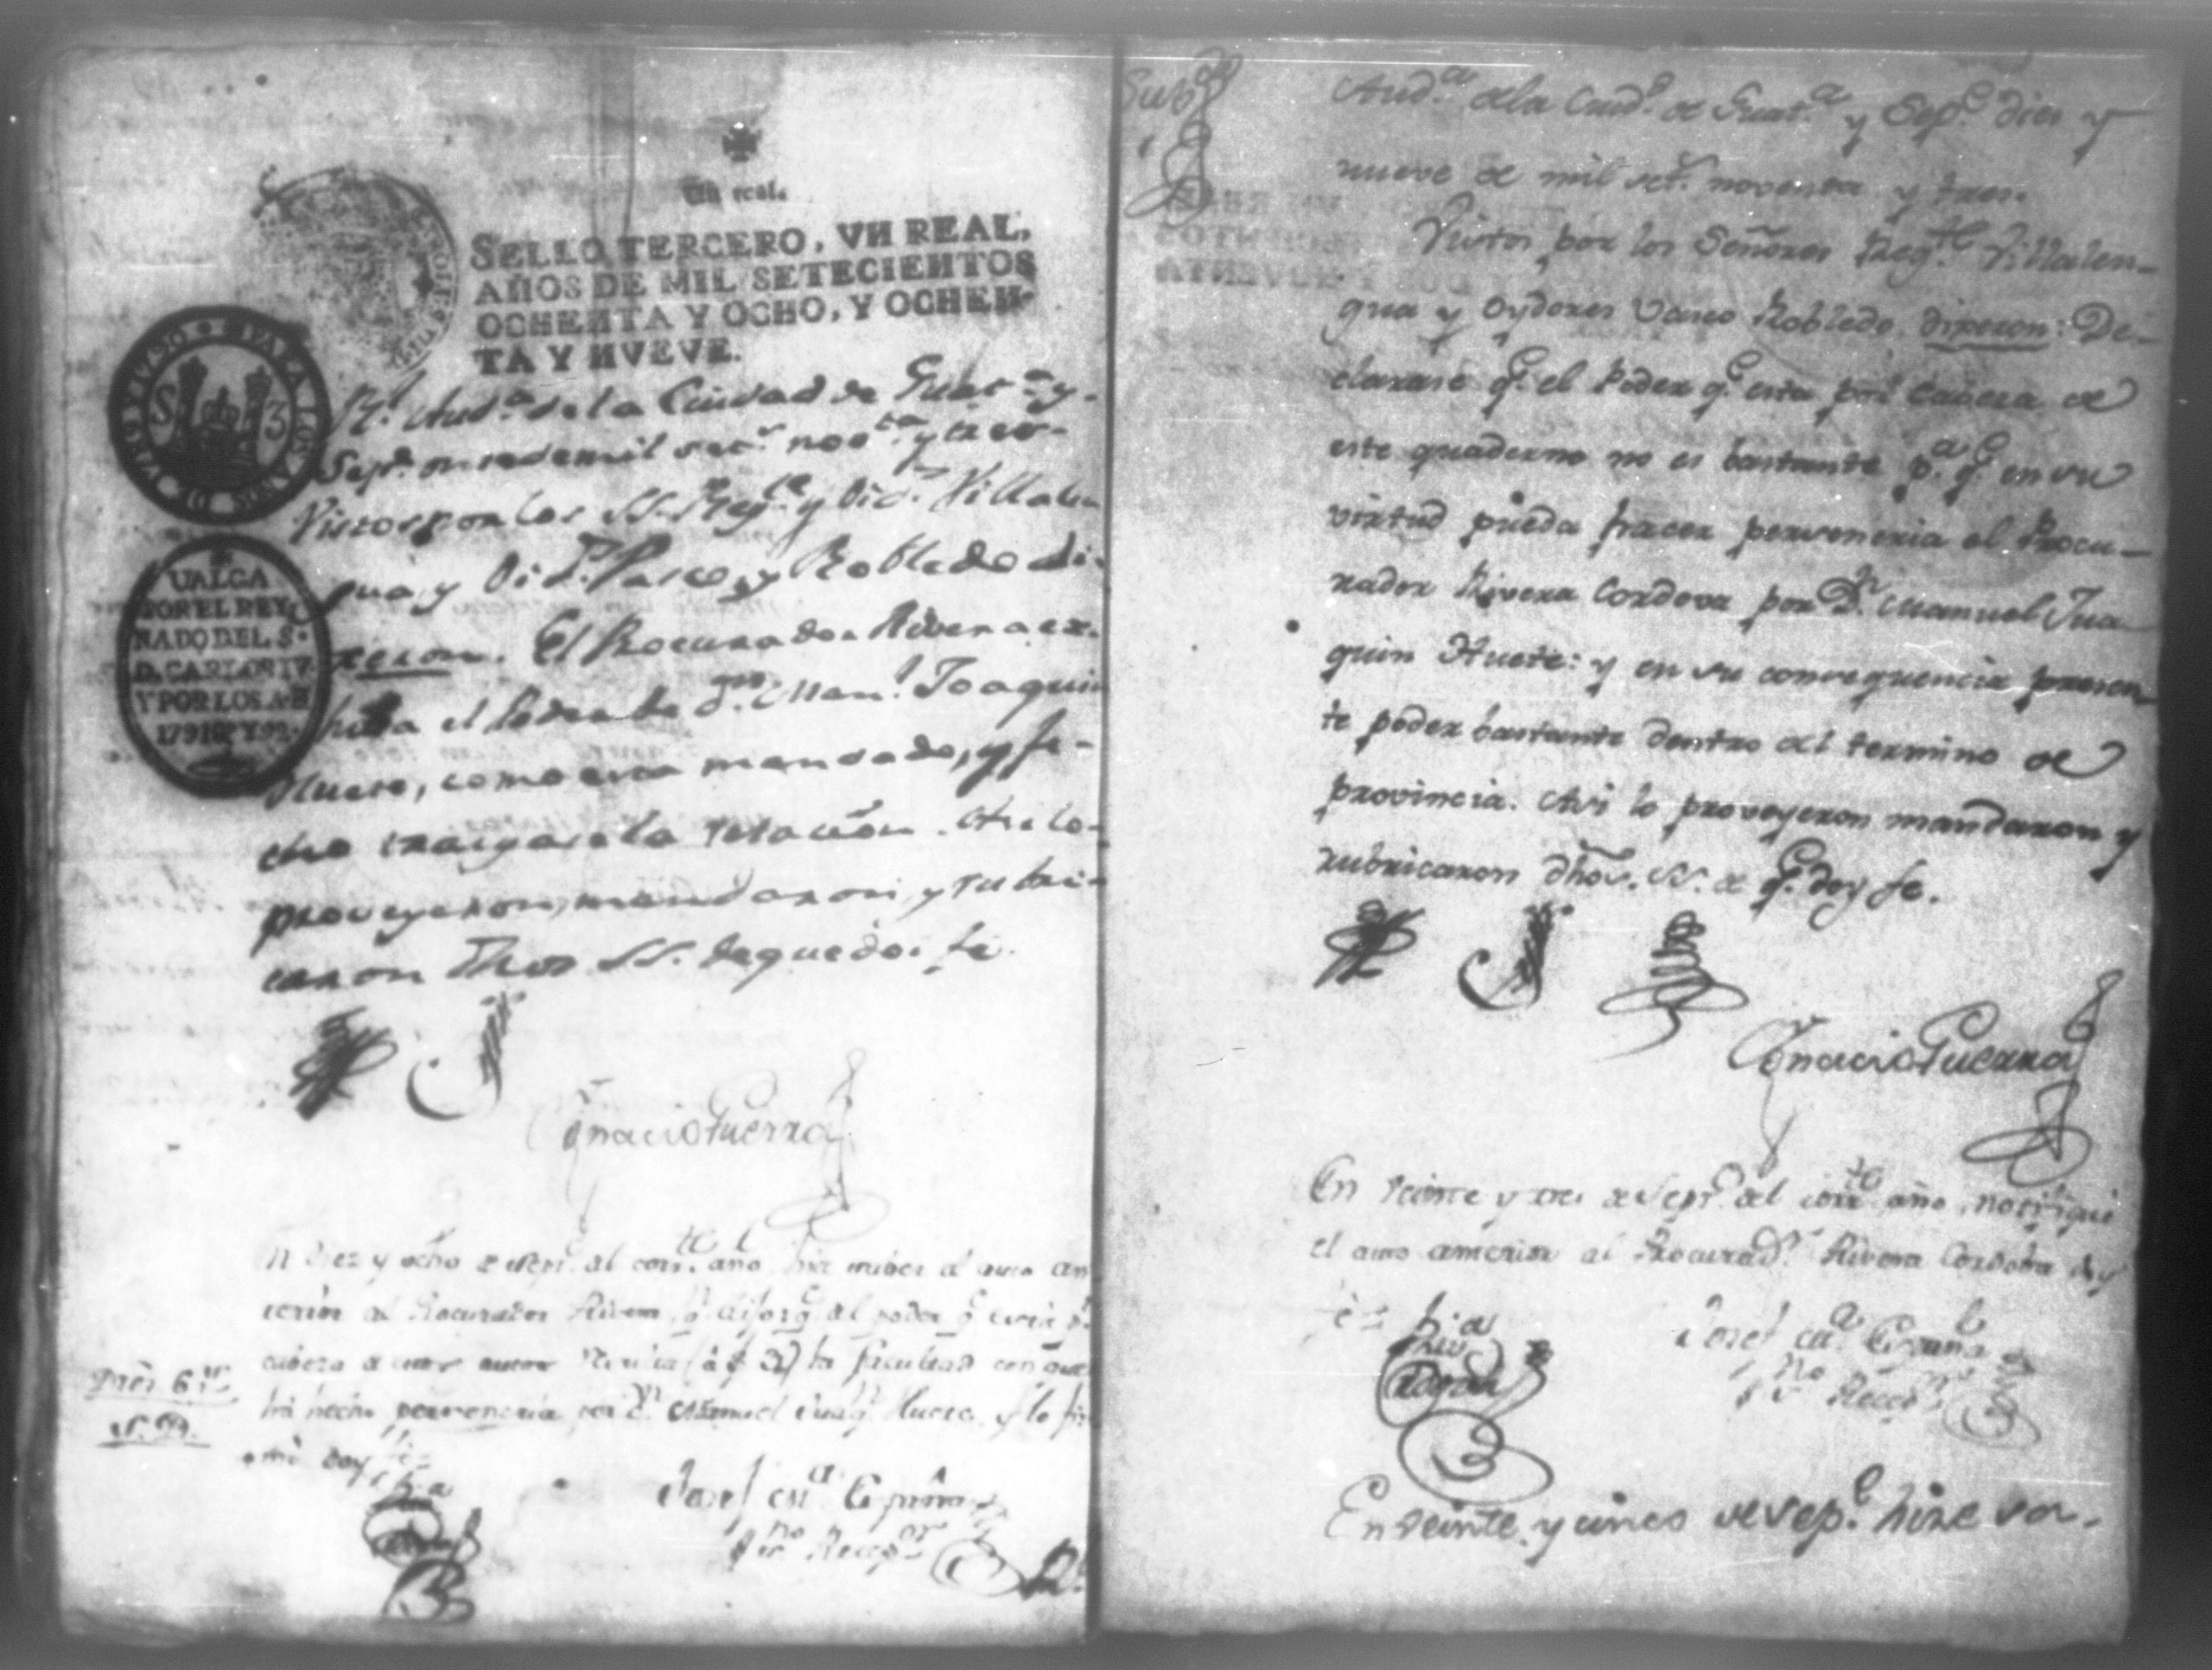 Un real.
SELLO TERCERO, VN REAL,
AÑOS DE MIL SETECIENTOS
OCHENTA Y OCHO, Y OCHEN-
TA Y NVEVE.
PARA LOS AÑOS DE 1790 Y 1790
S 3
VALGA
POR EL REY-
NADO DEL S.
D. CARLOS IV.
Y POR LOS A.
1791 Y 92.
Rl. Auda. de la Ciudad de Guata. y
Sepre. onse de mil sets. novta. y tres.
Vistos por los SS. Regte. y Oid. Villalen
gua, y Oid.s Vasco, y Robledo di-
xeron. El Procurador Rivera ex-
hiba el Poder de Dn. Manl. Joaquin
Huete, como esta mandado, y fe-
cho traigase la relacion. Asi lo
proveyeron, mandaron, y rubri-
caron dhos SS. de que doi fe.
Ignacio Guerra
n diez y ocho de Sepe. del corrte. año hize saber el auto an
terior al Procurador Rivera
cabeza de estos autos (à f 3) la facultad con que
há hecho personeria por Dn. Manuel Juaqn. Huete, y lo fir
mó doy fe=
Dros 6 rs.
Josef Ma. España
Sno. Recepr.
Auda. de la Ciud. de Guata. y Sepe. dies y
nueve de mil sets. noventa y tres.
Vistos por los Señores Regte. Villalen-
gua y Oydores Vasco Robledo dixeron: De-
clarase qe. el Poder qe. esta por cabeza de
este quaderno no es bastante pa. qe. en su
virtud pueda hacer personeria el Procu-
rador Rivera Cordova por Dn. Manuel Jua-
quin Huete: y en su consequencia presen
te poder bastante dentro del termino de
provincia. Asi lo proveyeron mandaron y
rubricaron dhos. SS. de qe. doy fe.
Ignacio Guerra
En veinte y tres de Sepe. del corrte. año, notifiqué
el auto anterior al Procurador Rivera Cordova doy
fe=
Josef Ma. España
Sno. Recepr.
En veinte y cinco de Sepe. hize sa-